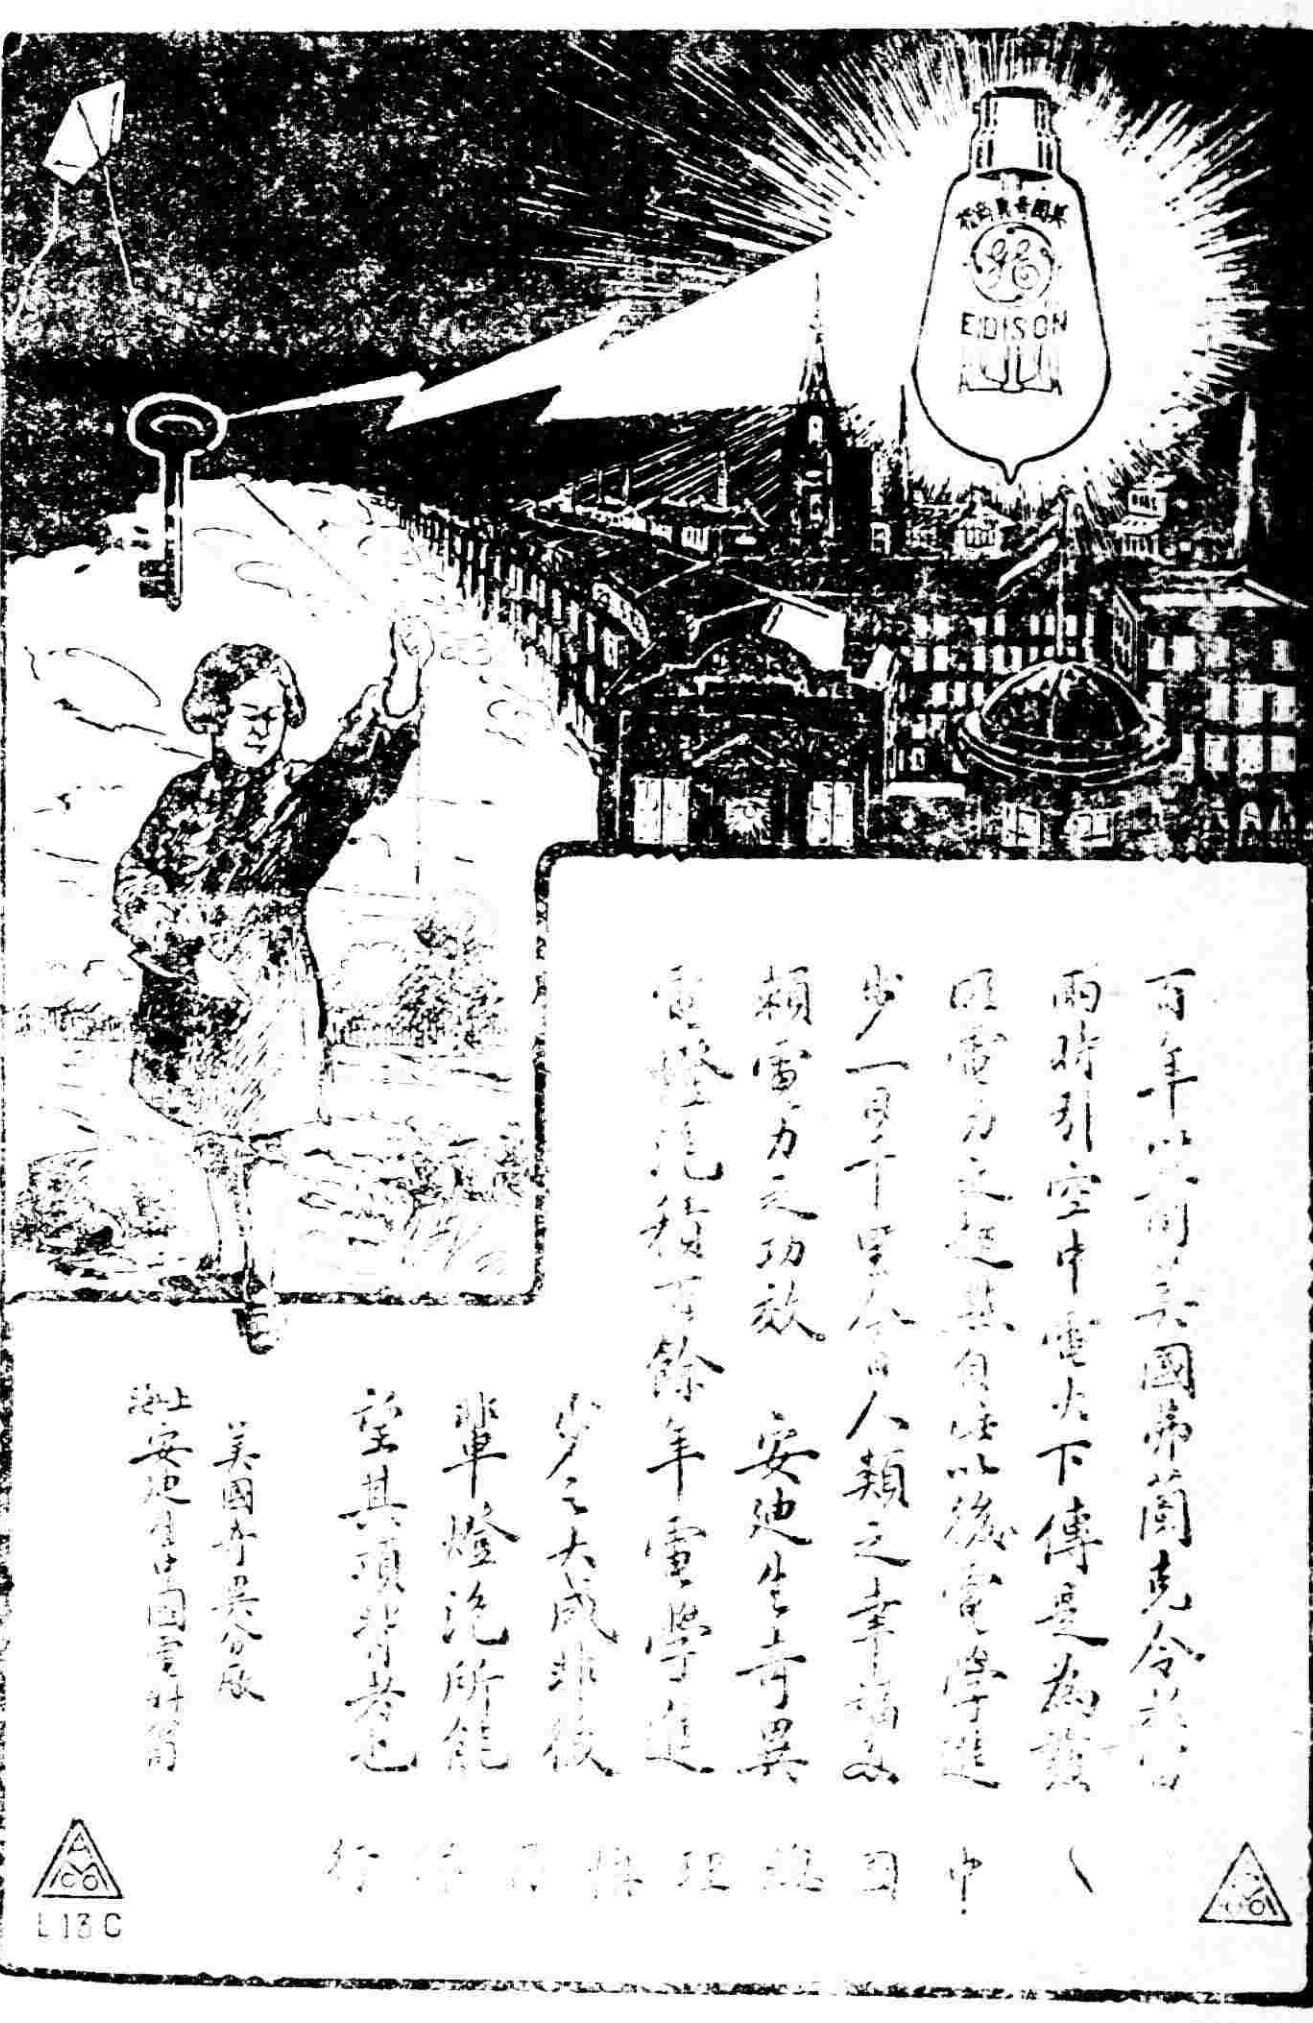 美國奇異商標
GE
EDISON
百年以前美國弗蘭克令於雷
雨時引空中電火下傳是為發
明電力之起點自此以後電學進
步一日千里今日人類之幸福多
賴電力之功效。 安迪生奇異
電燈泡積百餘年電學進
步之大成非彼
輩燈泡所能
望其項背者也
美國奇異公司
上海安迪生中國電料
中國總理 行
AMCO
L 13 C